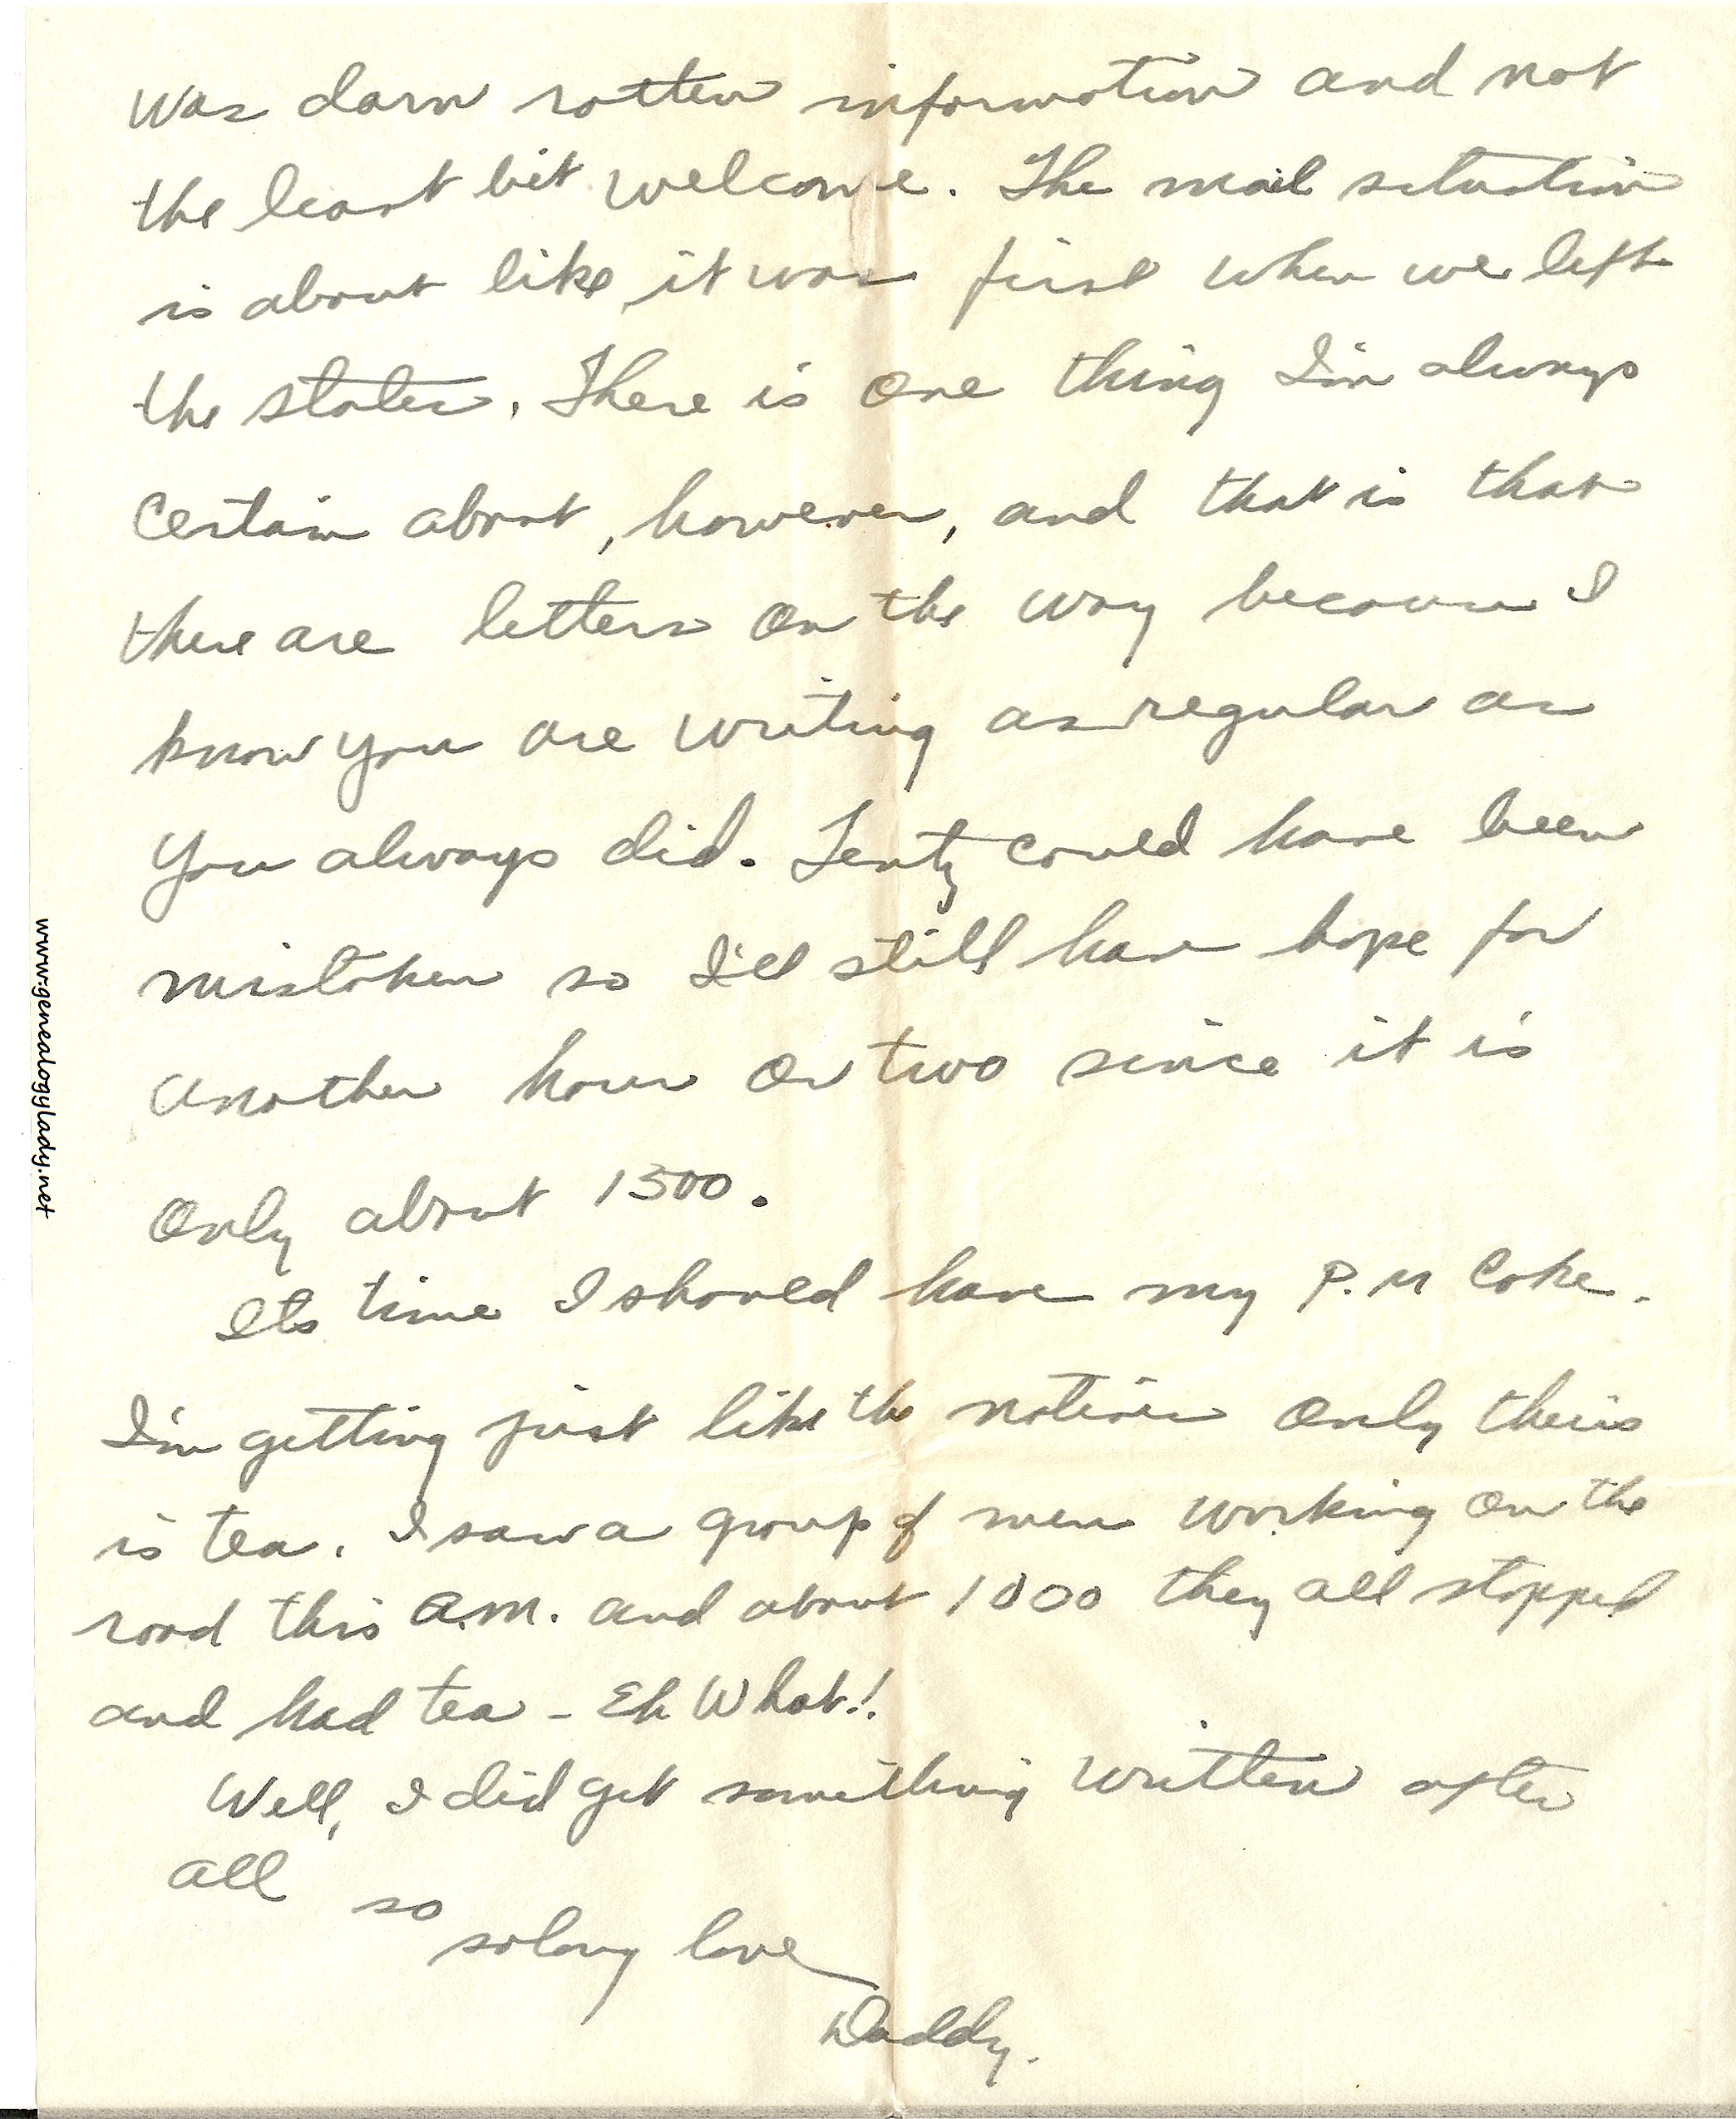 Was darn rotten information and not
the least bit welcome. The mail situation
is about like it was first when we left
the states. There is one thing I'm always
certain about, however, and that is that
there are letters on the way because I
know you are writing as regular as
you always did. Lentz could have been
mistaken so I'll still have hope for
another hour or two since it is
only about 1500.
Its time I should have my P.M Coke.
I'm getting just like the natives only theirs
is tea. I saw a group of men working on the
road this a.m. and about 1000 they all stopped
and had tea - Eh What!!
Well, I did get something written after
all so
solong love
Daddy.
www.genealogylady.net